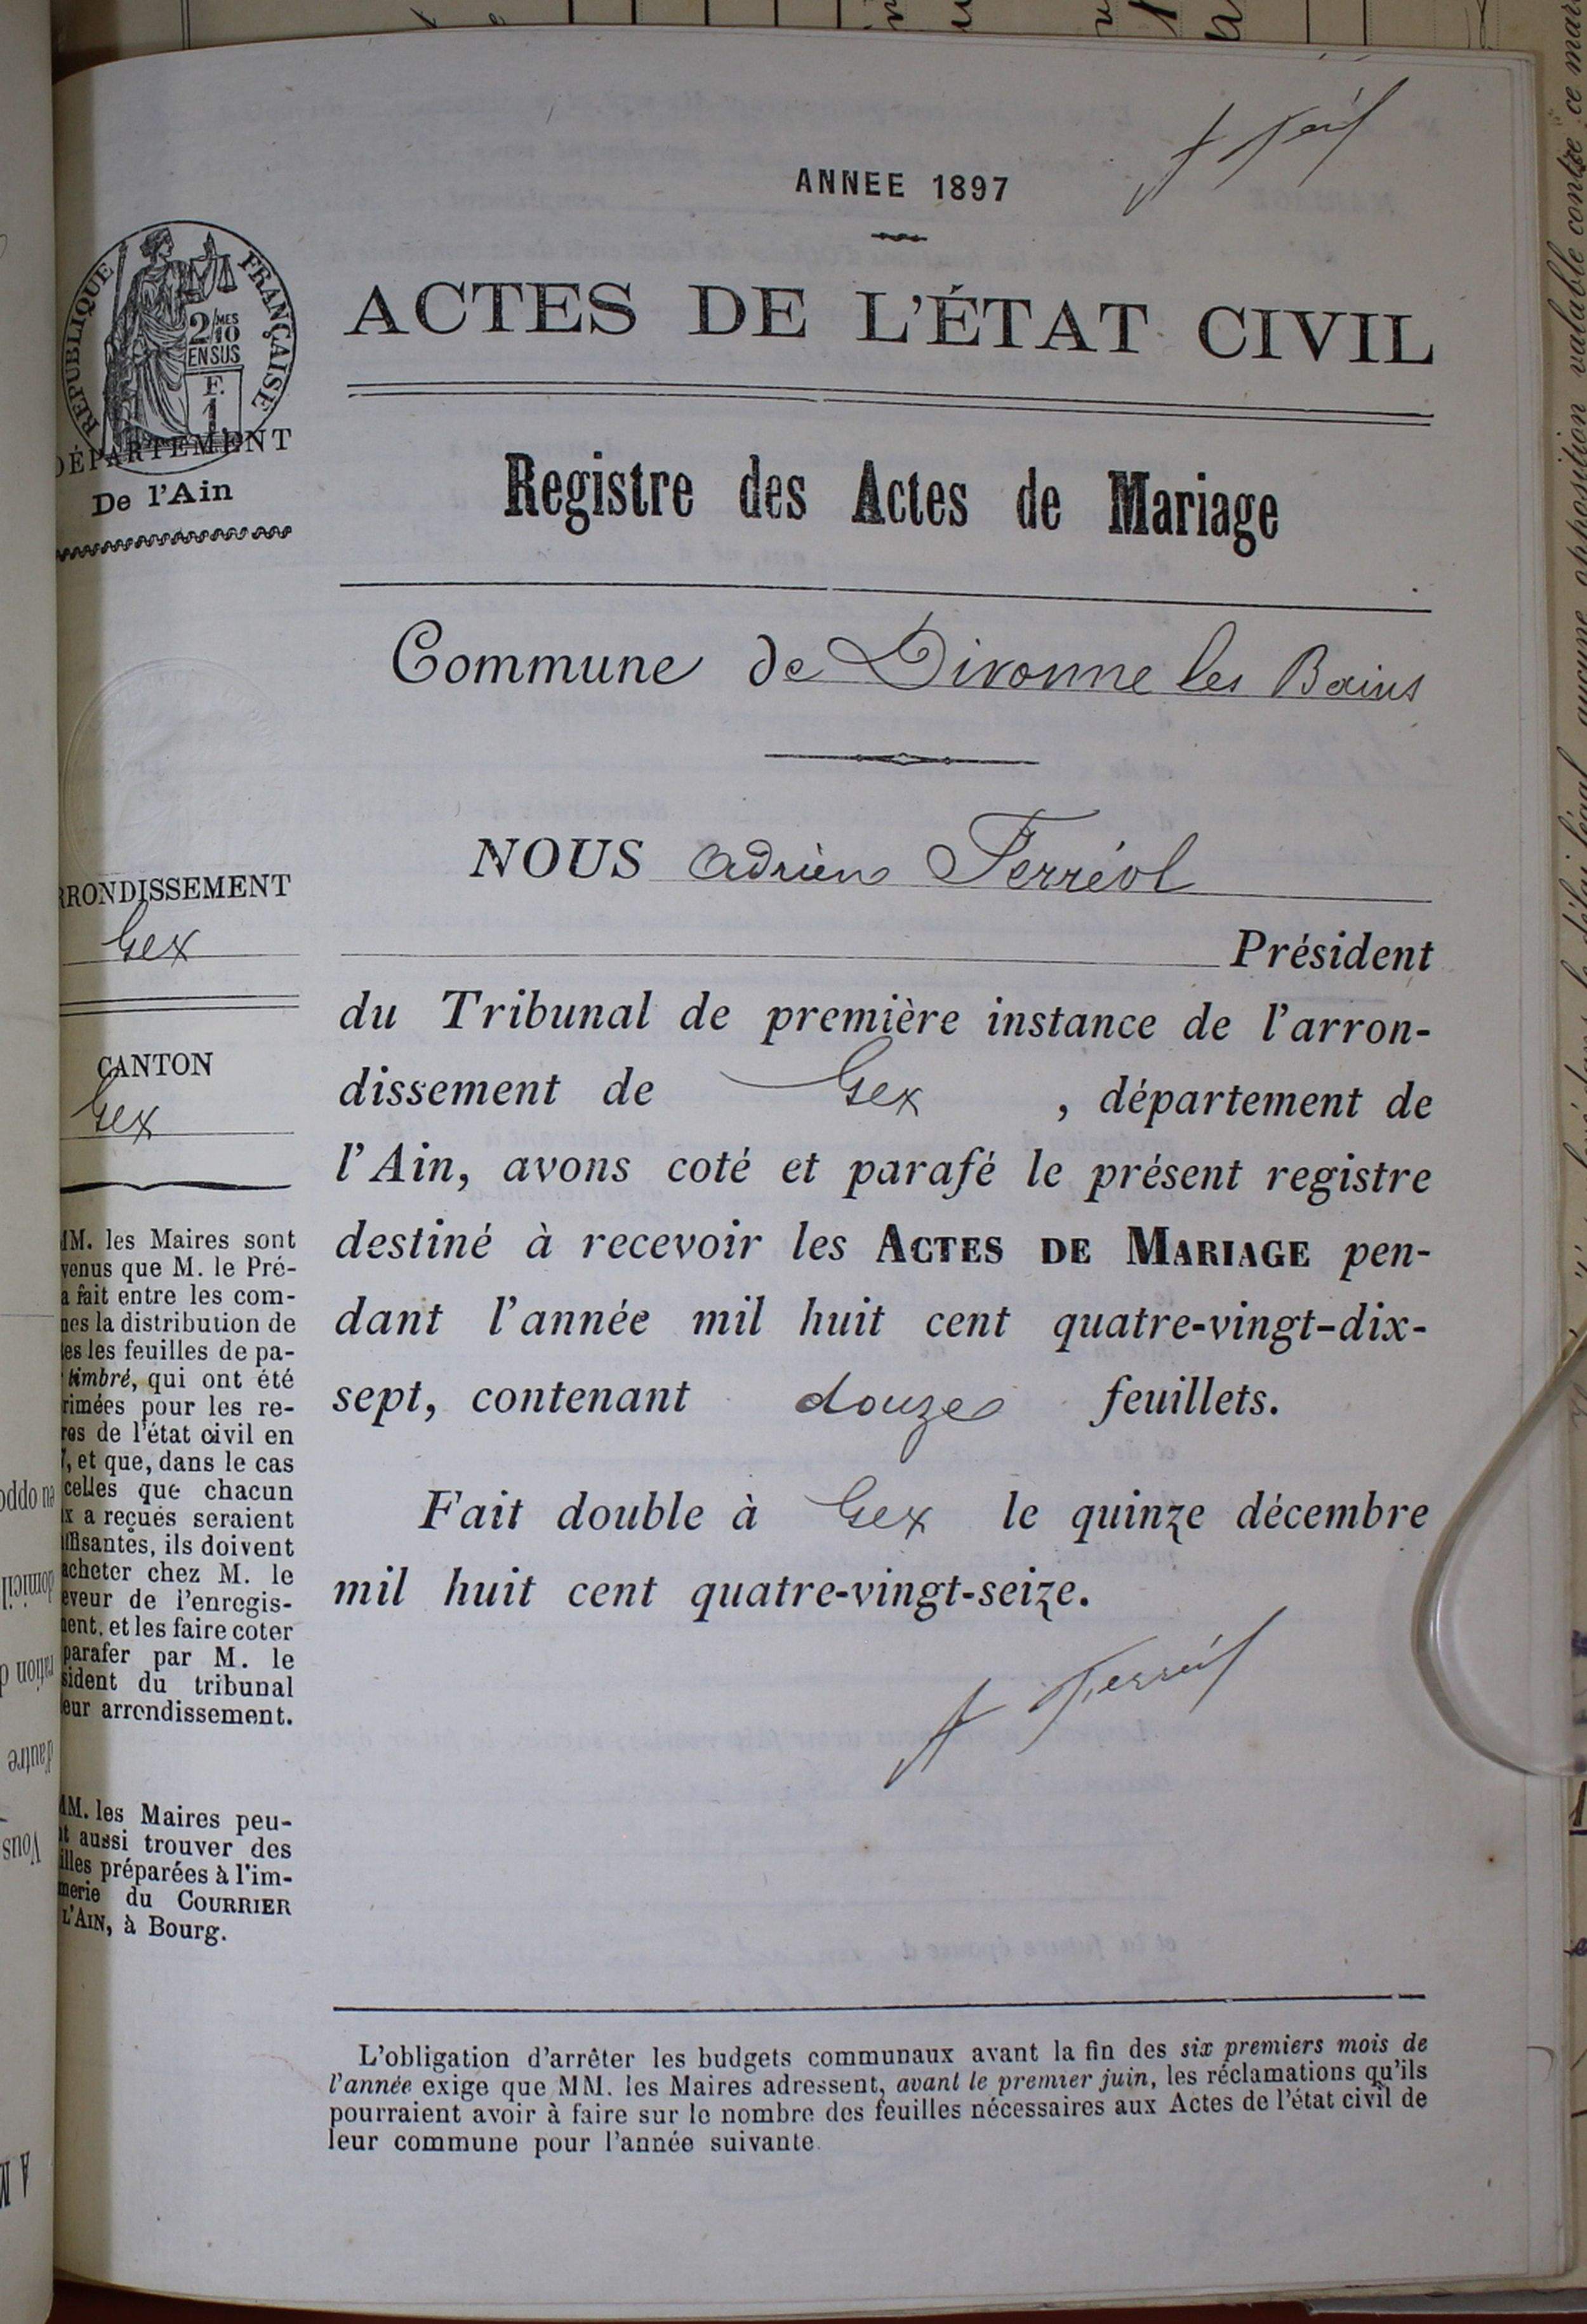 ANNEE 1897
ACTES DE L'ÉTAT CIVIL
RÉPUBLIQUE FRANÇAISE
2/MES
10
EN SUS
F.
1
DÉPARTEMENT
De l'Ain
Registre des Actes de Mariage
Commune de Divonne les Bains
NOUS Adrien Ferréol
Président
du Tribunal de première instance de l'arron-
dissement de Gex , département de
l'Ain, avons coté et parafé le présent registre
destiné à recevoir les ACTES DE MARIAGE pen-
dant l'année mil huit cent quatre-vingt-dix-
sept, contenant douze feuillets.
Fait double à Gex le quinze décembre
mil huit cent quatre-vingt-seize.
A Ferréol
RRONDISSEMENT
Gex
CANTON
Gex
MM. les Maires sont
venus que M. le Pré-
a fait entre les com-
nes la distribution de
es les feuilles de pa-
timbré, qui ont été
rimées pour les re-
res de l'état civil en
, et que, dans le cas
celles que chacun
x a reçues seraient
ffisantes, ils doivent
acheter chez M. le
eveur de l'enregis-
ment, et les faire coter
parafer par M. le
sident du tribunal
eur arrondissement.
MM. les Maires peu-
t aussi trouver des
illes préparées à l'im-
merie du COURRIER
L'AIN, à Bourg.
L'obligation d'arrêter les budgets communaux avant la fin des six premiers mois de
l'année exige que MM. les Maires adressent, avant le premier juin, les réclamations qu'ils
pourraient avoir à faire sur le nombre des feuilles nécessaires aux Actes de l'état civil de
leur commune pour l'année suivante.